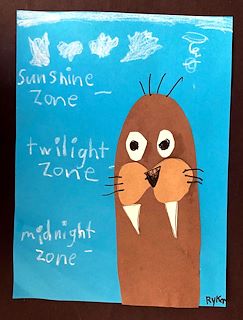 sunshine
zone -
twilight
zone -
midnight
zone -